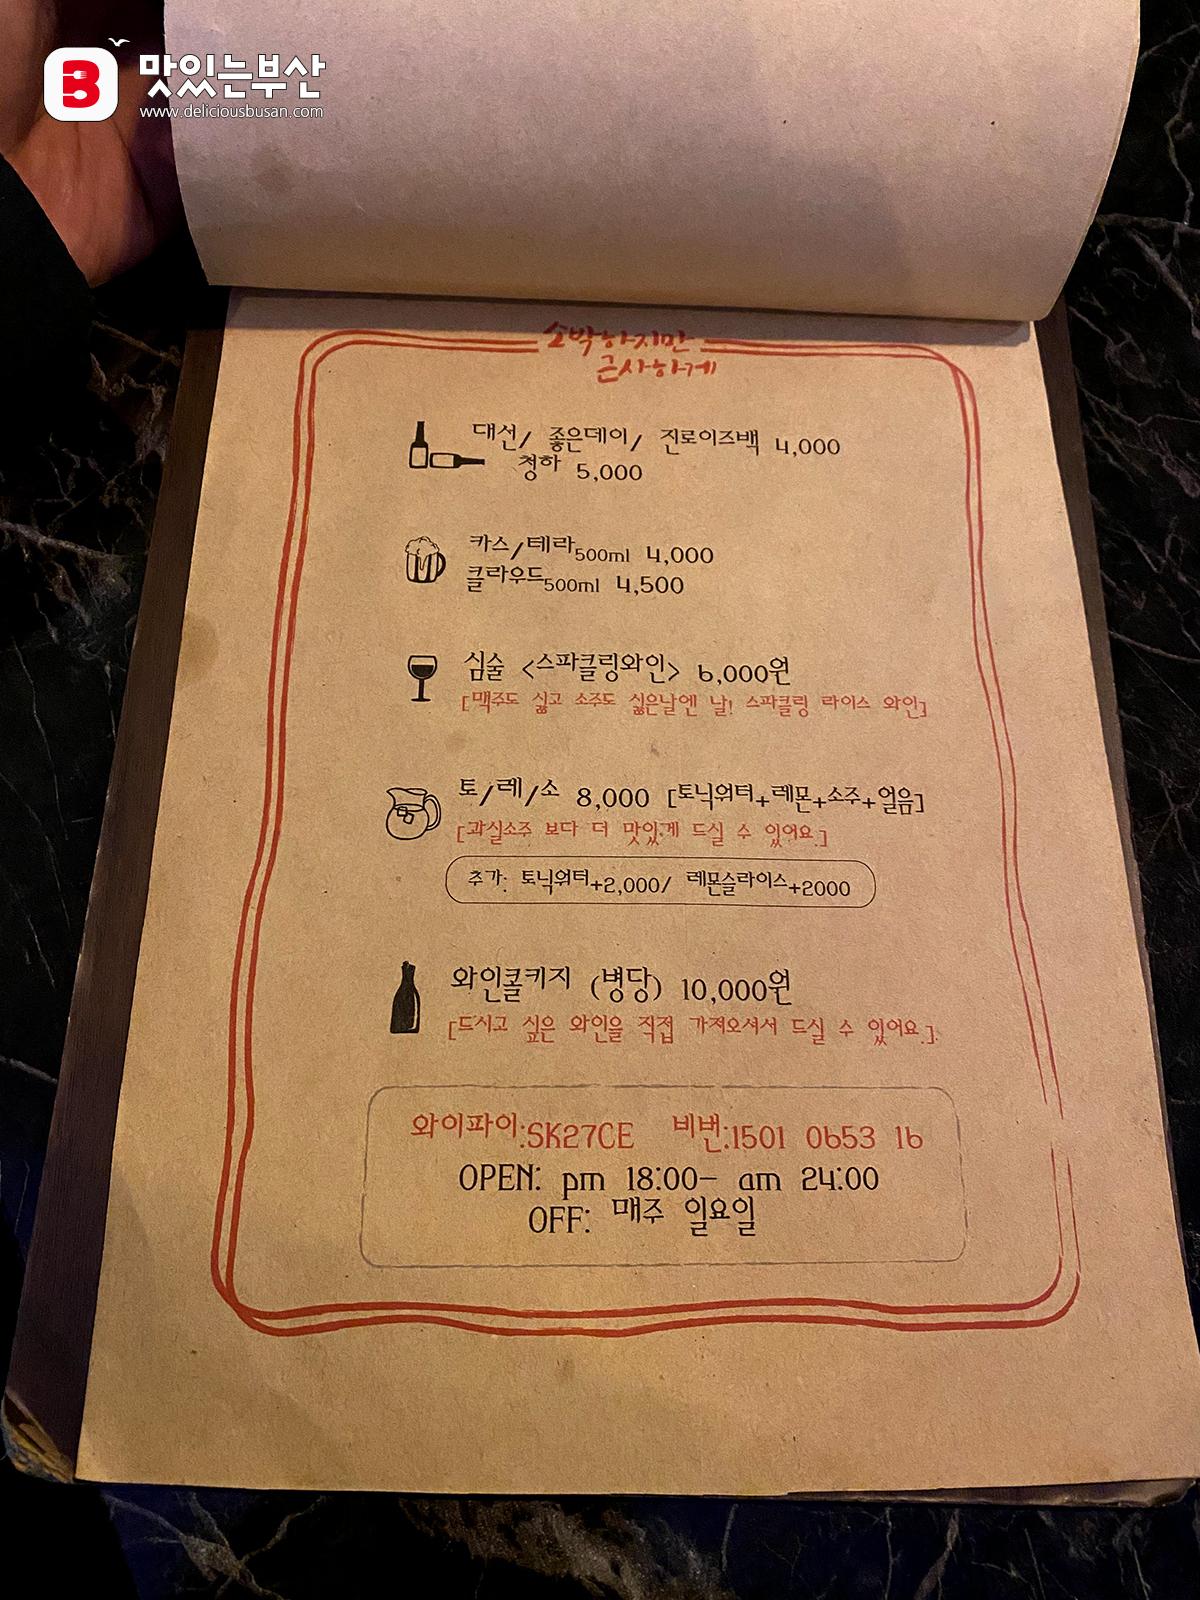 B 맛있는부산
www.deliciousbusan.com
소박하지만
근사하게
대선/ 좋은데이/ 진로이즈백 4,000
청하 5,000
카스/테라500ml 4,000
클라우드500ml 4,500
심술 <스파클링와인> 6,000원
[맥주도 싫고 소주도 싫은날엔 날! 스파클링 라이스 와인]
토/레/소 8,000 [토닉워터+레몬+소주+얼음]
[과실소주 보다 더 맛있게 드실 수 있어요.]
추가: 토닉워터+2,000/ 레몬슬라이스+2000
와인콜키지 (병당) 10,000원
[드시고 싶은 와인을 직접 가져오셔서 드실 수 있어요.]
와이파이:SK27CE 비번:1501 0653 16
OPEN: pm 18:00- am 24:00
OFF: 매주 일요일